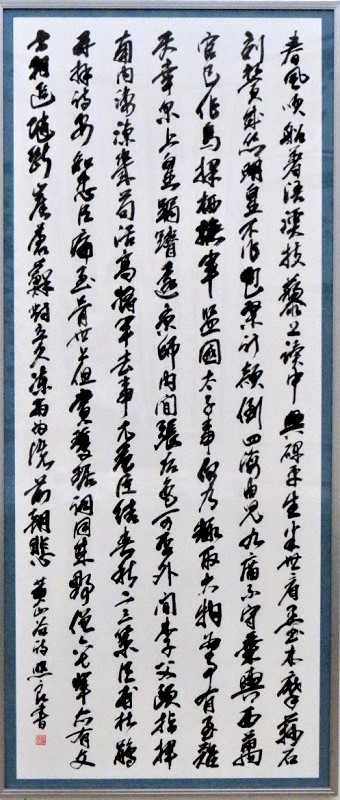 春風吹船著浯溪扶藜上讀中興碑平生半世看墨本摩挲石
刻鬢成絲明皇不作苞桑計顛倒四海由兒九廟不守乘輿西萬
官已作鳥擇棲撫軍監國太子事何乃趣取大物為事有至難
天幸尔上皇跼蹐還京師內間張后色可否外間李父頤指揮
南內凄涼幾苟活高將軍去事尤危臣結春秋二三策臣甫杜鵑
再拜詩安知忠臣痛至骨世上但賞瓊琚詞同來野僧六七輩亦有文
士相追隨斷崖蒼蘚對立久凍雨為洗前朝悲 黃山谷詩 書